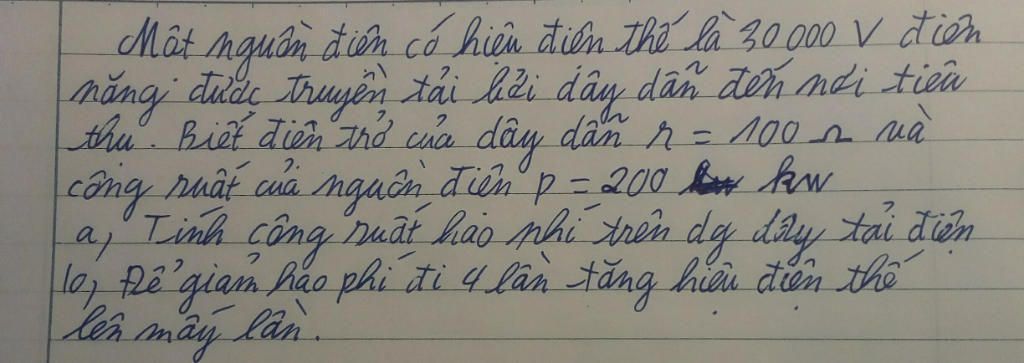 Một nguồn điện có hiệu điện thế là 30 000 V điện
năng được truyền tải bởi dây dẫn đến nơi tiêu
thụ. Biết điện trở của dây dẫn r = 100 Ω và
công suất của nguồn điện p = 200 kw
a, Tính công suất hao phí trên dg dây tải điện
b, Để giảm hao phí đi 4 lần tăng hiệu điện thế
lên mấy lần.